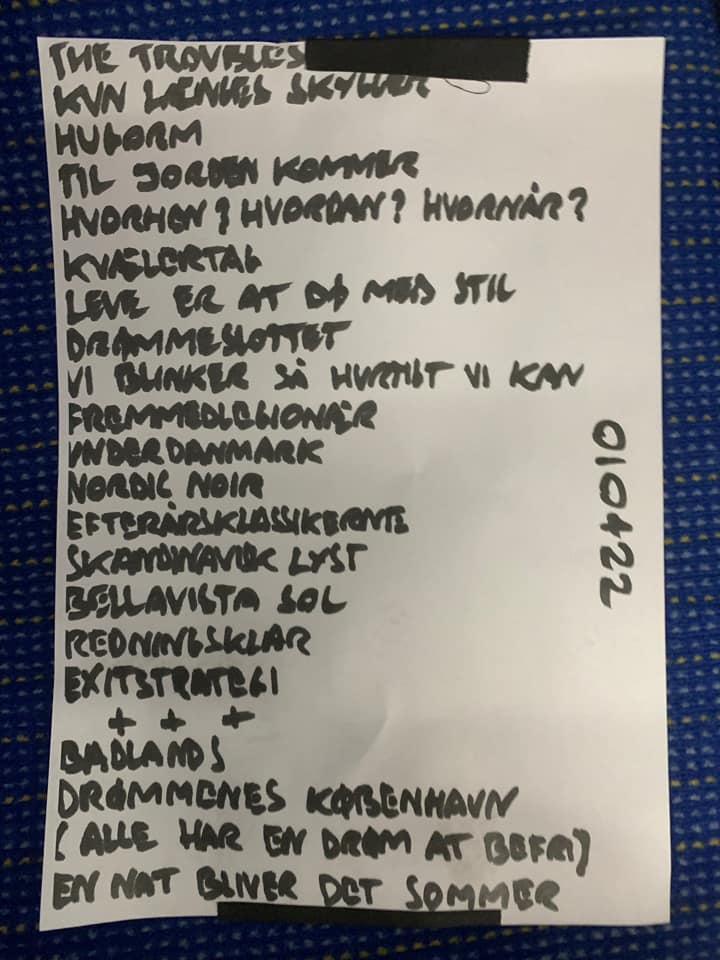 THE TROUBLES
KUN LÆNGES SKYLLER
HUGORM
TIL JORDEN KOMMER
HVORHEN? HVORDAN? HVORNÅR?
KVÆLERTAG
LEVE ER AT DØ MED STIL
DRØMMESLOTTET
VI BLINKER SÅ HURTIGT VI KAN
FREMMEDLEGIONÆR
UNDERDANMARK
NORDIC NOIR
EFTERÅRSKLASSIKERNE
SKANDINAVISK LYST
BELLAVISTA SOL
REDNINGSKLAR
EXITSTRATEGI
+ + +
BADLANDS
DRØMMENES KØBENHAVN
(ALLE HAR EN DRØM AT BEFRI)
EN NAT BLIVER DET SOMMER
010422